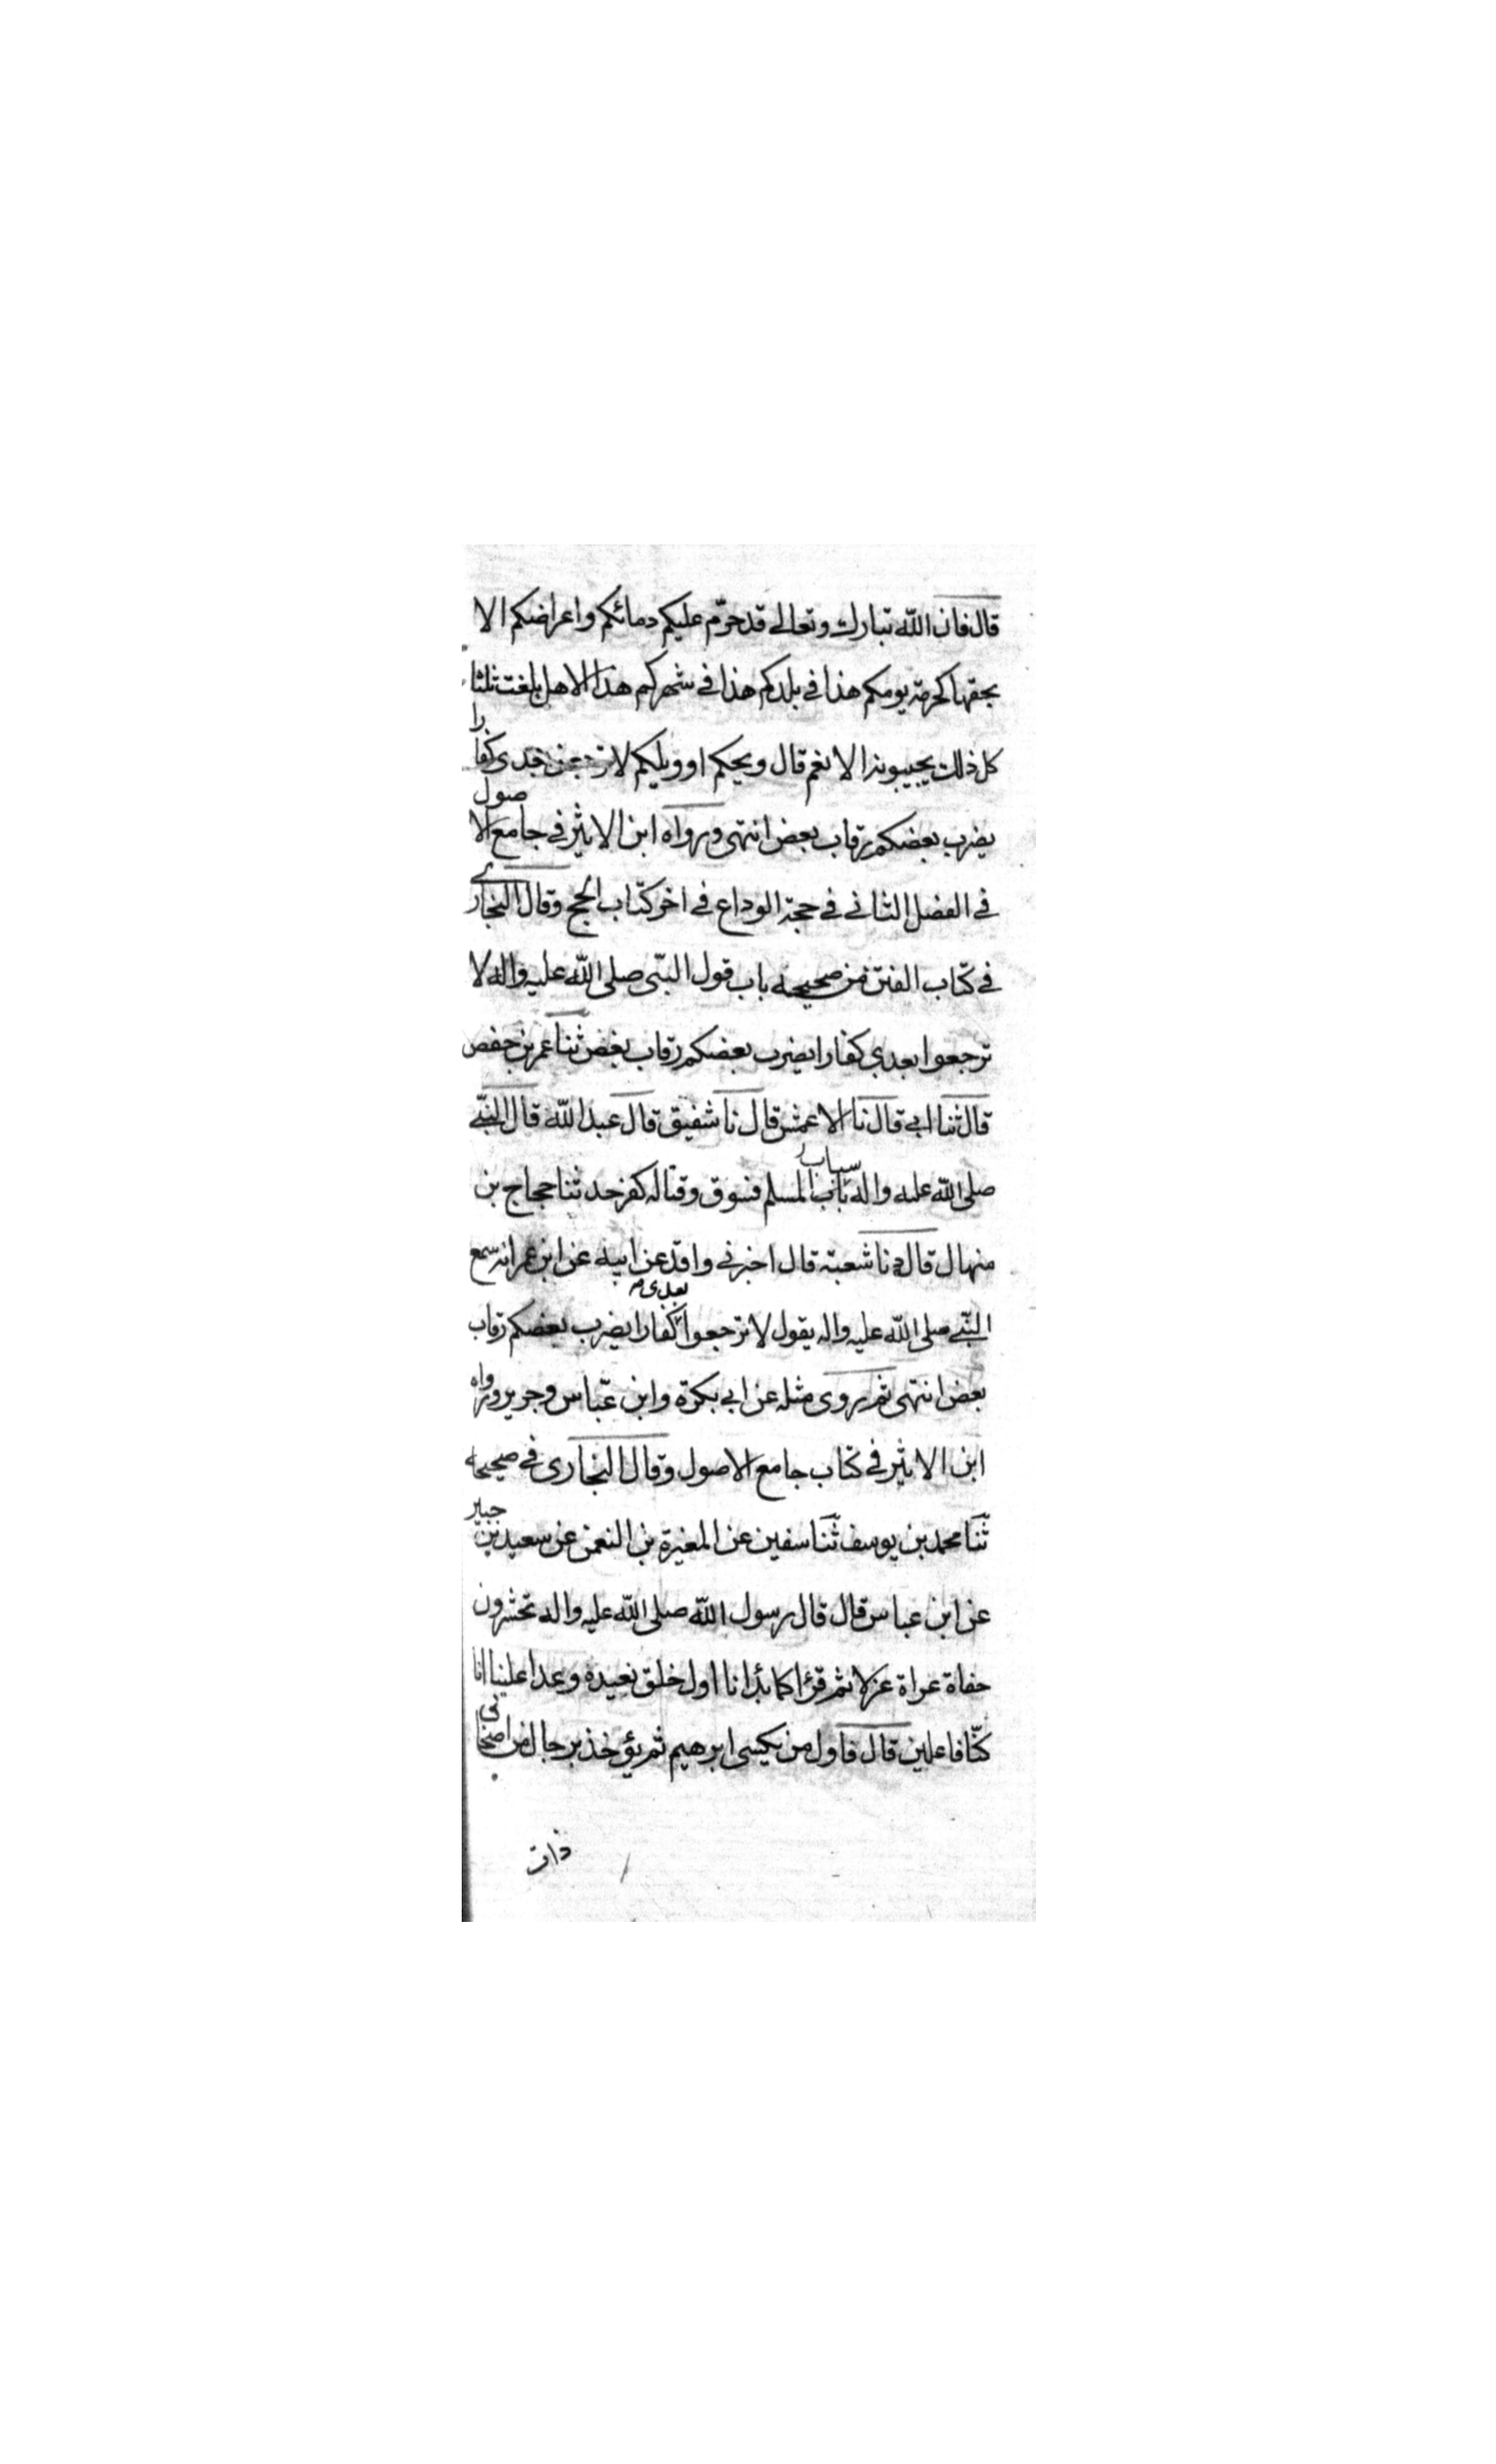 قال فان الله تبارك وتعالى قد حرّم عليكم دمائكم واعراضكم الا
بحقها كحرمة يومكم هذا في بلدكم هذا في شهركم هذا الا هل بلغت ثلثا
كل ذلك يجيبونه الا نعم قال ويحكم او ويلكم لا ترجعن بعدى كفارا
يضرب بعضكم رقاب بعض انتهى ورواه ابن الاثير في جامع الاصول
في الفصل الثاني في حجة الوداع في اخر كتاب الحج وقال البخاري
في كتاب الفتن من صحيحه باب قول النبي صلى الله عليه واله لا
ترجعوا بعدي كفارا يضرب بعضكم رقاب بعض ثنا عمر بن حفص
قال ثنا ابي قال نا الاعمش قال نا شقيق قال عبد الله قال النبي
صلى الله عليه واله سباب المسلم فسوق وقتاله كفر حدثنا حجاج بن
منهال قال نا شعبة قال اخبرني واقد عن ابيه عن ابن عمر انه سمع
النبي صلى الله عليه واله يقول لا ترجعوا بعدى كفارا يضرب بعضكم رقاب
بعض انتهى ثم روى مثله عن ابي بكرة وابن عبّاس وجرير ورواه
ابن الاثير في كتاب جامع الاصول وقال البخارى في صحيحه
ثنا محمد بن يوسف ثنا سفين عن المغيرة بن النعمن عن سعيد بن جبير
عن ابن عباس قال قال رسول الله صلى الله عليه واله تحشرون
حفاة عراة عزلا ثم قرٔا كما بدٔانا اول خلق نعيده وعدا علينا انا
كنّا فاعلين قال فاول من يكسى ابرهيم ثم يؤخذ برجال من اصحابى
ذات